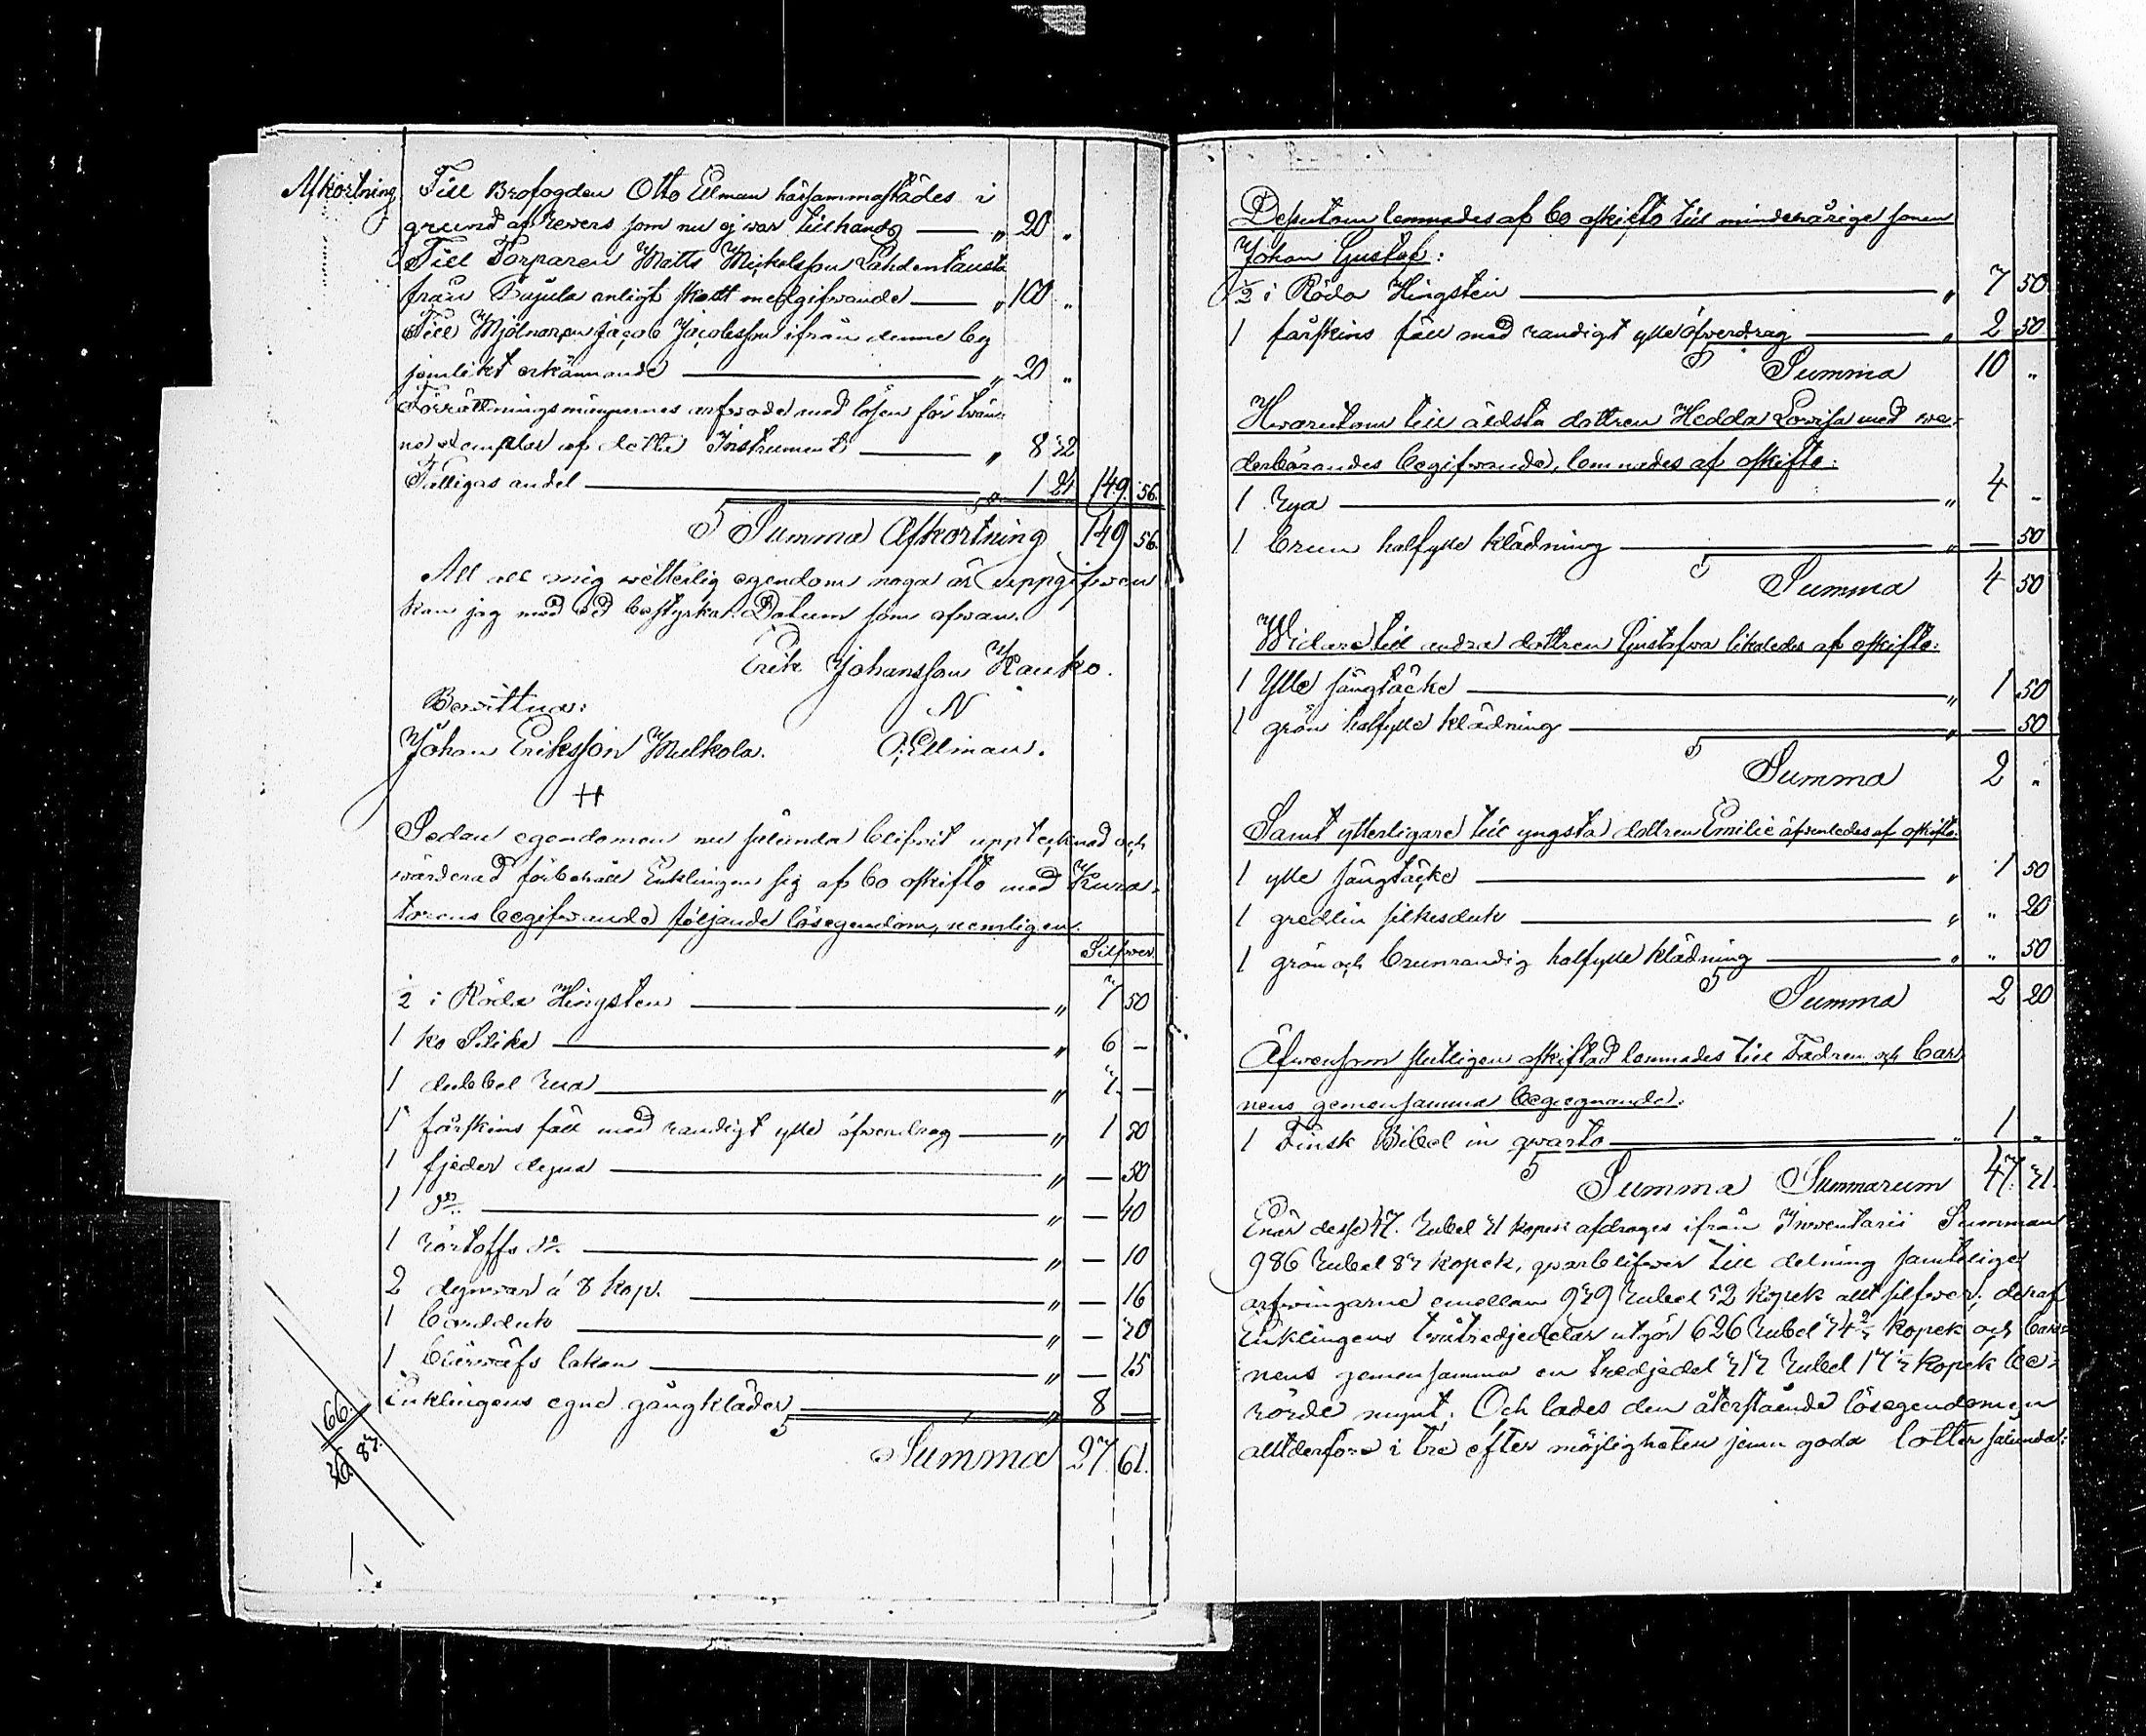 Afkortning
Till Brofogden Otto Ellman härsammastädes i
grund af Revers som nu ej war tillhands — „ 20 „
Till Torparen Matts Mickelsson Lahdentausta
från anligt skatt medgifwande — „ 100 „
Till Mjölnaren Jacob Jacobsson ifrån denne by
jemlikt erkännande — „ 20 „
Förrättningsmännernes arfwode med lösen för twän-
ne exemplar af detta Instrument — „ 8 32
Fattigas andel — „ 1 24 149. 56.
Summa Afkortning 149 56.
All mig witterlig egendom noga är uppgifwen
kan jag med ed bestyrka. Datum som ofwan.
Erik Johansson Kauko.
Bewittna: N
Johan Eriksson Mulkola. O. Ellman.
H
Sedan egendomen nu sålunda blifwit upptecknad och
wärderad förbehåll Enklingen sig af bo oskifto med Kura-
torens begifwande följande lösegendom, nemligen:
Silfwer
½ i Röda Hingsten — „ 7 50
1 ko Silika — „ 6 —
1 dubbel rua — „ —
1 fårskins fäll med randigt ylle öfwerdrag — „ 1 20
1 fjeder dyna — „ — 50
1 do — „ — 40
1 do — „ — 10
2 dynwar á 8 kop. — „ — 16
1 bordduk — „ — 20
1 lakan — „ — 25
Enklingens egne gångkläder — „ 8 —
Summa 27 61.
Desutom lemnades af bo oskifto till minderårige sonen
Johan Gustaf:
½ i Röda Hingsten — „ 7 50
1 fårskins fäll med randigt ylle öfwerdrag — „ 2 50
Summa 10 „
Hwarutom till äldsta dottren Hedda Lowisa med we-
derbörandes begifwande, lemnades af oskifto:
1 Rya — „ 4 -
1 brun halfylle klädning — „ — 50
Summa 4 50
Widare till andra dottren Gustafwa likaledes af oskifto:
1 Ylle sängtäcke — „ 1 50
1 grön halfylle klädning — „ — 50
Summa 2 „
Samt ytterligare till yngsta dottren Emilie äfwenledes af oskifto:
1 ylle sängtäcke — „ 1 50
1 gredlin silkesduk — „ „ 20
1 grön och brunrandig halfylle klädning — „ „ 50
Summa 2 20
Äfwensom slutligen oskiftad lemnades till Fadren och bar-
nens gemensamma begagnande:
1 Finsk Bibel in qwarto — „ 1 „
Summa Summarum 47. 31.
Enär desse 47. rubel 31 kopek afdrages ifrån Inventarii Summan
986 rubel 83 kopek, qwarblifwer till delning samtelige
arfwingarne emellan 939 rubel 52 kopek allt silfwer; deraf
Enklingens twåtredjedelar utgör 626 rubel 34 ⅔ kopek och bar-
nens gemensamma en tredjedel 313 rubel 17 ⅓ kopek be-
rörde mynt. Och lades den återstående lösegendomen
alltderföre i tre efter möjligheten jemn goda lotter sålunda:
166.